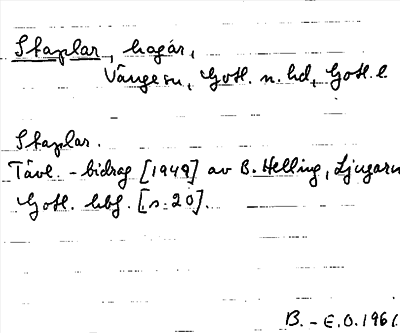 Staplar, hagar,
Vänge sn, Gotl. n. hd, Gotl. l.
Staplar.
Tävl. - bidrag [1949] av B. Helling, Ljugarn
Gotl. hbf. [s. 20].
B. - E.O. 1961